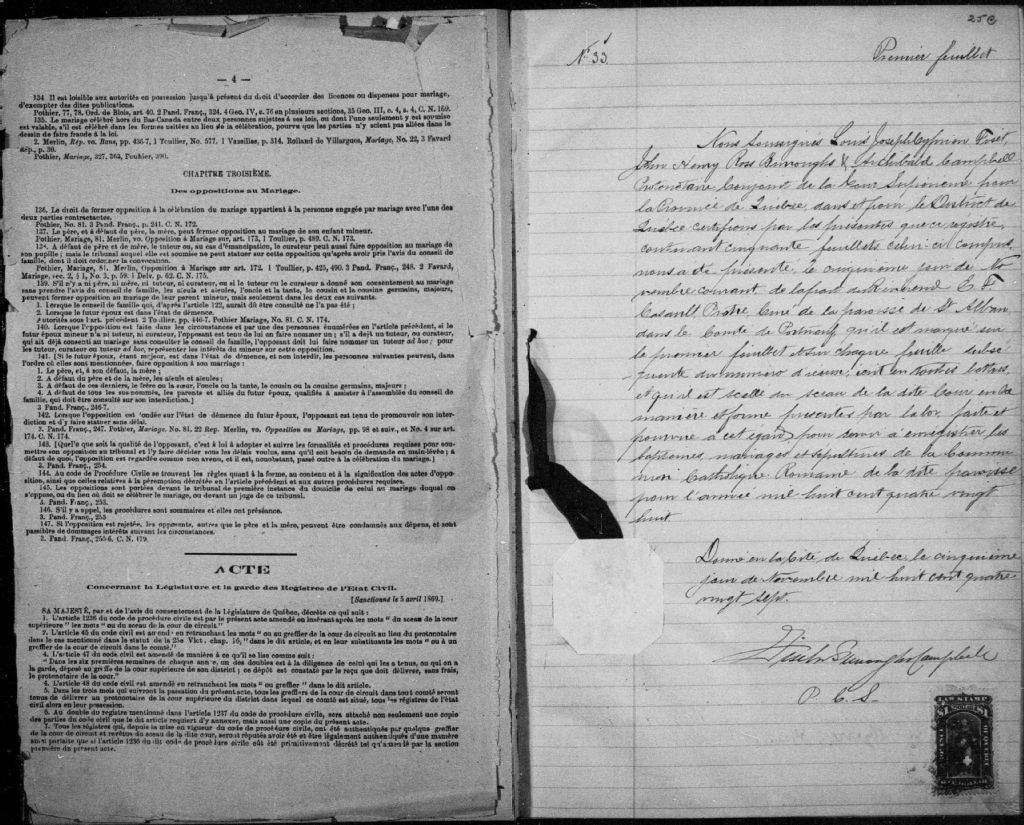 — 4 —
134 Il est loisible aux autorités en possession jusqu'à présent du droit d'accorder des licences ou dispenses pour mariage,
d'exempter des dites publications.
Pothier, 77, 78. Ord. de Blois, art. 40. 2 Pand. Franç., 324. 4 Geo. IV, c. 76 en plusieurs sections, 35 Geo. III, c. 4, s. 4, C. N. 169.
135. Le mariage célébré hors du Bas-Canada entre deux personnes sujettes à ses lois, ou dont l'une seulement y est soumise
est valable, s'il est célébré dans les formes usitées au lieu de la célébration, pourvu que les parties n'y soient pas allées dans le
dessin de faire fraude à la loi.
2. Merlin, Rep. vo. Bans, pp. 436-7, 1 Toullier, No. 577, 1 Vazilles, p. 314. Rolland de Villargues, Mariage, No. 22, 3 Favard
Rép., p. 30.
Pothier, Mariage, 327, 363, Touhier, 390.
CHAPITRE TROISIÈME.
Des oppositions au Mariage.
136. Le droit de former opposition à la célébration du mariage appartient à la personne engagée par mariage avec l'une des
deux parties contractantes.
Pothier, No. 81. 3 Pand. Franç., p. 241. C. N. 172.
137. Le père, et à défaut du père, la mère, peut former opposition au mariage de son enfant mineur.
Pothier, Mariage, 81, Merlin, vo. Opposition à Mariage sur, art. 173, 1 Toullier, p. 489. C. N. 173.
138. A défaut de père et de mère, le tuteur ou, au cas d'émancipation, le curateur peut aussi faire opposition au mariage de
son pupille; mais le tribunal auquel elle est soumise ne peut statuer sur cette opposition qu'après avoir pris l'avis du conseil de
famille, dont il doit ordonner la convocation.
Pothier, Mariage, 81. Merlin, Opposition à Mariage sur art. 172. 1 Toullier, p. 425, 490. 3 Pand. Franç., 248. 2 Favard,
Mariage, sec. 2, § 1, No. 3, p. 59. 1 Delv. p. 62. C. N. 175.
139. S'il n'y a ni père, ni mère, ni tuteur, ni curateur, ou si le tuteur ou le curateur a donné son consentement au mariage
sans prendre l'avis du conseil de famille, les aïeuls et aïeules, l'oncle et la tante, le cousin et la cousine germains, majeurs,
peuvent former opposition au mariage de leur parent mineur, mais seulement dans les deux cas suivants.
1. Lorsque le conseil de famille qui, d'après l'article 122, aurait dû être consulté ne l'a pas été;
2. Lorsque le futur époux est dans l'état de démence.
Autorités sous l'art. précédent 2 Toullier, pp. 446-7. Pothier Mariage, No. 81. C. N. 174.
140. Lorsque l'opposition est faite dans les circonstances et par une des personnes énumérées en l'article précédent, si le
futur époux mineur n'a ni tuteur, ni curateur, l'opposant est tenu de lui en faire nommer un; s'il a déjà un tuteur, ou curateur,
qui ait déjà consenti au mariage sans consulter le conseil de famille, l'opposant doit lui faire nommer un tuteur ad hoc; pour
les tuteur, curateur ou tuteur ad hoc, représenter les intérêts du mineur sur cette opposition.
141. [Si le futur époux, étant majeur, est dans l'état de démence, et non interdit, les personnes suivantes peuvent, dans
l'ordre où elles sont mentionnées, faire opposition à son mariage:
1. Le père, et, à son défaut, la mère;
2. A défaut du père et de la mère, les aïeuls et aïeules;
3. A défaut de ces derniers, le frère ou la sœur, l'oncle ou la tante, le cousin ou la cousine germains, majeurs;
4. A défaut de tous les sus-nommés, les parents et alliés du futur époux, qualifiés à assister à l'assemblée du conseil de
famille, qui doit être consulté sur son interdiction.]
3 Pand. Franç., 246-7.
142. Lorsque l'opposition est fondée sur l'état de démence du futur époux, l'opposant est tenu de promouvoir son inter-
diction et d'y faire statuer sans délai.
3. Pand. Franç., 247. Pothier, Mariage. No. 81. 22 Rep. Merlin, vo. Opposition au Mariage, pp. 98 et suiv., et No. 4 sur art.
174. C. N. 174.
143. [Quelque soit la qualité de l'opposant, c'est à lui à adopter et suivre les formalités et procédures requises pour sou-
mettre son opposition au tribunal et l'y faire décider sous les délais voulus, sans qu'il soit besoin de demande en main-levée; à
défaut de quoi, l'opposition est regardée comme non avenu, et il est, nonobstant, passé outre à la célébration du mariage.]
3. Pand. Franç., 254.
144. Au code de Procédure Civile se trouvent les règles quant à la forme, au contenu et à la signification des actes d'oppo-
sition, ainsi que celles relatives à la péremption décrétée en l'article précédent et aux autres procédures requises.
145. Les oppositions sont portées devant le tribunal de première instance du domicile de celui au mariage duquel on
s'oppose, ou du lieu où doit se célébrer le mariage, ou devant un juge de ce tribunal.
3. Pand. Franç., 253.
146. S'il y a appel, les procédures sont sommaires et elles ont préséance.
3. Pand. Franç., 253
147. Si l'opposition est rejetée, les opposants, autres que le père et la mère, peuvent être condamnés aux dépens, et sont
passibles de dommages intérêts suivant les circonstances.
3. Pand. Franç., 255-6. C. N. 179.
ACTE
Concernant la Législature et la garde des Registres de l'Etat Civil.
[Sanctionné le 5 avril 1869.]
SA MAJESTÉ, par et de l'avis du consentement de la Législature de Québec, décrète ce qui suit:
1. L'article 1236 du code de procédure civile est par le présent acte amendé en insérant après les mots "du sceau de la cour
supérieure" les mots "ou du sceau de la cour de circuit."
2. L'article 45 du code civil est amendé en retranchant les mots "ou au greffier de la cour de circuit au lieu du protonotaire
dans le cas mentionné dans le statut de la 25e Vict. chap. 16," dans le dit article, et en leur substituant les mots "ou à un
greffier de la cour de circuit dans le comté."
4. L'article 47 du code civil est amendé de manière à ce qu'il se lise comme suit:
"Dans les six premières semaines de chaque année, un des doubles est à la diligence de celui qui les a tenus, ou qui en a
la garde, déposé au greffe de la cour supérieure de son district; ce dépôt est constaté par le reçu que doit délivrer, sans frais,
le protonotaire de la cour."
4. L'article 48 du code civil est amendé en retranchant les mots "ou greffier" dans le dit article.
5. Dans les trois mois qui suivront la passation du présent acte, tous les greffiers de la cour de circuit dans tout comté seront
tenus de délivrer au protonotaire de la cour supérieure du district dans lequel ce comté est situé, tous les régistres de l'état
civil alors en leur possession.
6. Au double du registre mentionné dans l'article 1237 du code de procédure civile, sera attaché non seulement une copie
des parties du code civil que le dit article requiert d'y annexer, mais aussi une copie du présent acte.
7. Tous les régistres qui, depuis la mise en vigueur du code de procédure civile, ont été authentiqués par quelque greffier
de la cour de circuit et revêtus du sceau de la dite cour, seront réputés avoir été et être légalement authentiqués d'une manière
aussi parfaite que si l'article 1236 du dit code de procédure civile eût été primitivement décrété tel qu'amendé par la section
première du présent acte.
25 C
No 33.
Premier feuillet
Nous Soussignés Louis Joseph Cyprien Fiset,
John Henry Ross Burroughs & Archibald Campbell
Protonotaire Conjoint de la Cour Supérieure pour
la Province de Québec, dans et pour le District de
Québec certifions par les présentes que ce registre
contenant cinquante feuillets celui-ci compris,
nous a été présenté le cinquième jour de No
vembre courant de la part du Révérend
Casault Prêtre Curé de la paroisse de St Alban
dans le Comté de Portneuf, qu'il est marqué sur
le premier feuillet et sur chaque feuille subsé
quente du numéro d'icelui, écrit en toutes lettres,
et qu'il est scellé du sceau de la dite Cour en la
manière et forme prescrites par la loi faite et
pourvue à cet égard pour servir à enregistrer les
baptêmes, mariages et sépultures de la Commu
nion Catholique Romaine de la dite paroisse
pour l'année mil huit cent quatre vingt
huit
Donné en la Cité de Québec, le cinquième
jour de Novembre mil huit cent quatre
vingt sept.
Fiset Burroughs Campbell
P. C. S.
LAW STAMP